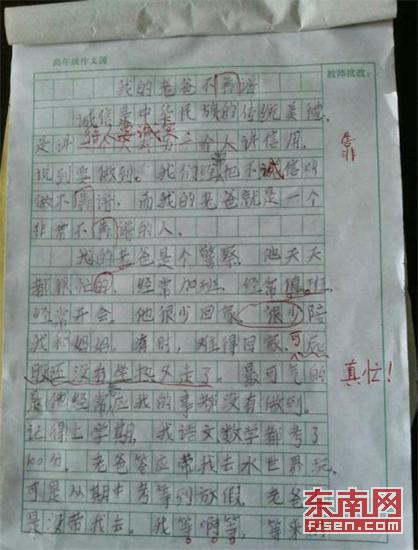 高年级作文簿
教师批改：
我的老爸不靠谱
诚信是中华民族的传统美德，
是讲给人要诚实，二个人讲信用，
说到要做到。我们经常把不诚信叫
做不靠谱。而我的老爸就是一个
非常不靠谱的人。
靠
我的老爸是个警察，他天天
都很忙的，经常加班，经常值班
经常开会，他很少回家，很少陪
我和妈妈。有时，难得回家，可屁
股还没有坐热又走了。最可气的
真忙！
是他经常应我的事都没有做到。
记得上学期，我语文数学都考了
100分，老爸答应带我去水世界玩，
可是从期中考等到放假，老爸
是没带我去。我等啊等，等来
东南网
FJSEN.COM